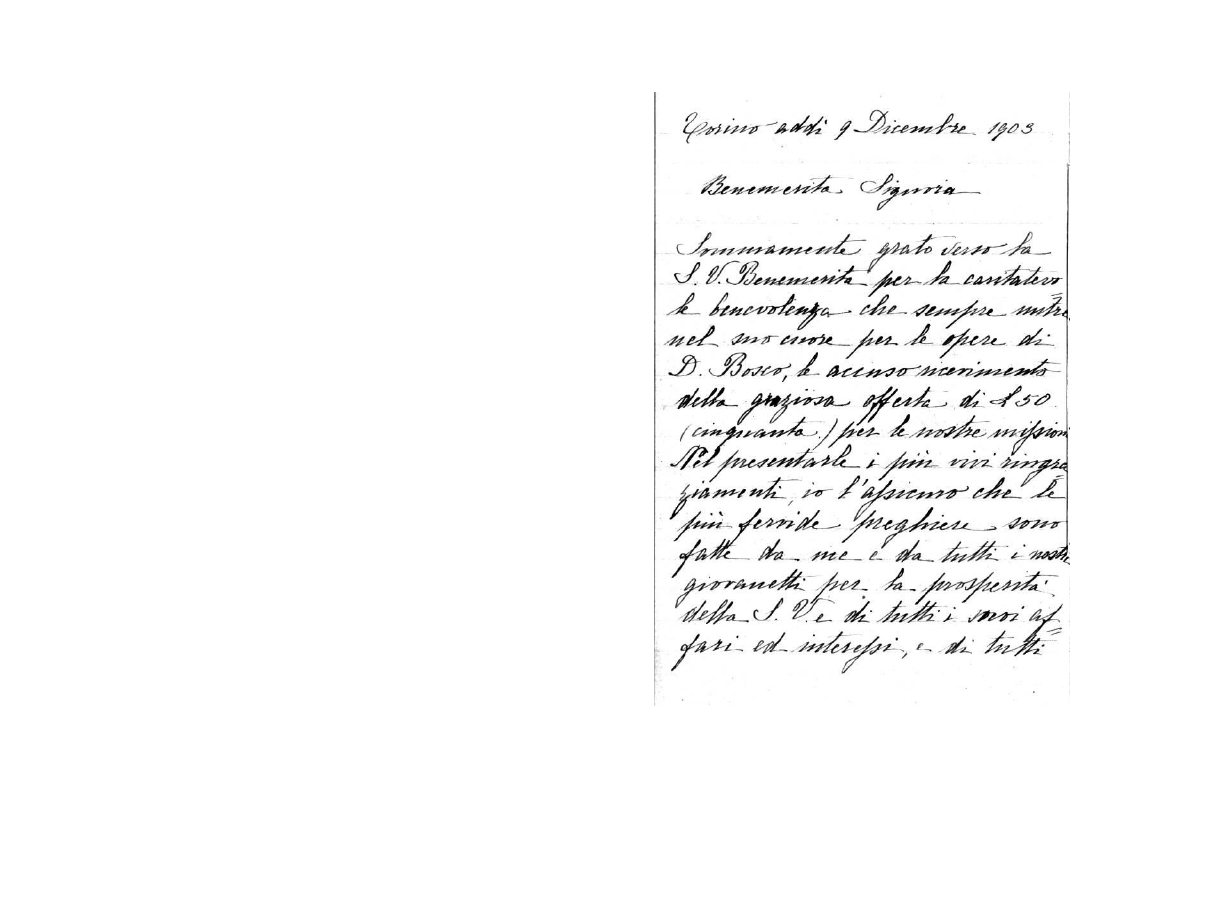 Torino addì 9 Dicembre 1903
Benemerita Signora
Sommamente grato verso la
S. V. Benemerita per la caritatevo=
le benevolenza che sempre nutre
nel suo cuore per le opere di
D. Bosco, le accuso ricevimento
della graziosa offerta di £ 50
(cinquanta) per le nostre missioni
Nel presentarle i più vivi ringra=
ziamenti, io l'assicuro che le
più fervide preghiere sono
fatte da me e da tutti i nostri
giovanetti per la prosperità
della S. V. e di tutti i suoi af=
fari ed interessi, e di tutti